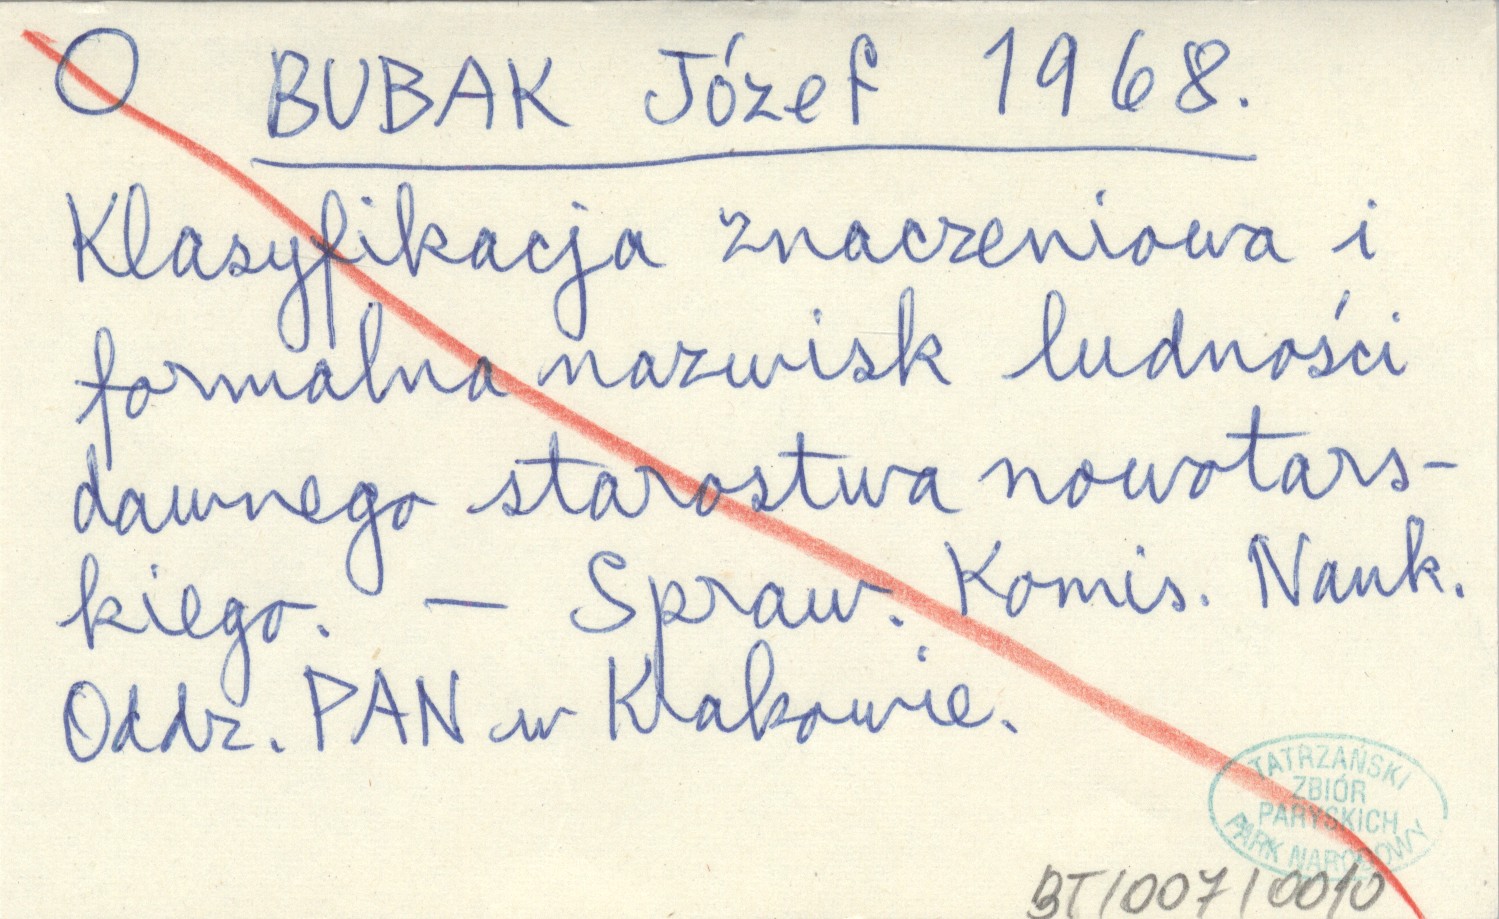 O BUBAK Józef 1968.
Klasyfikacja znaczeniowa i
formalna nazwisk ludności
dawnego starostwa nowotars-
kiego. — Spraw. Komis. Nauk.
Oddz. PAN w Krakowie.
TATRZAŃSKI
ZBIÓR
PARYSKICH
PARK NARODOWY
BT/007/0010